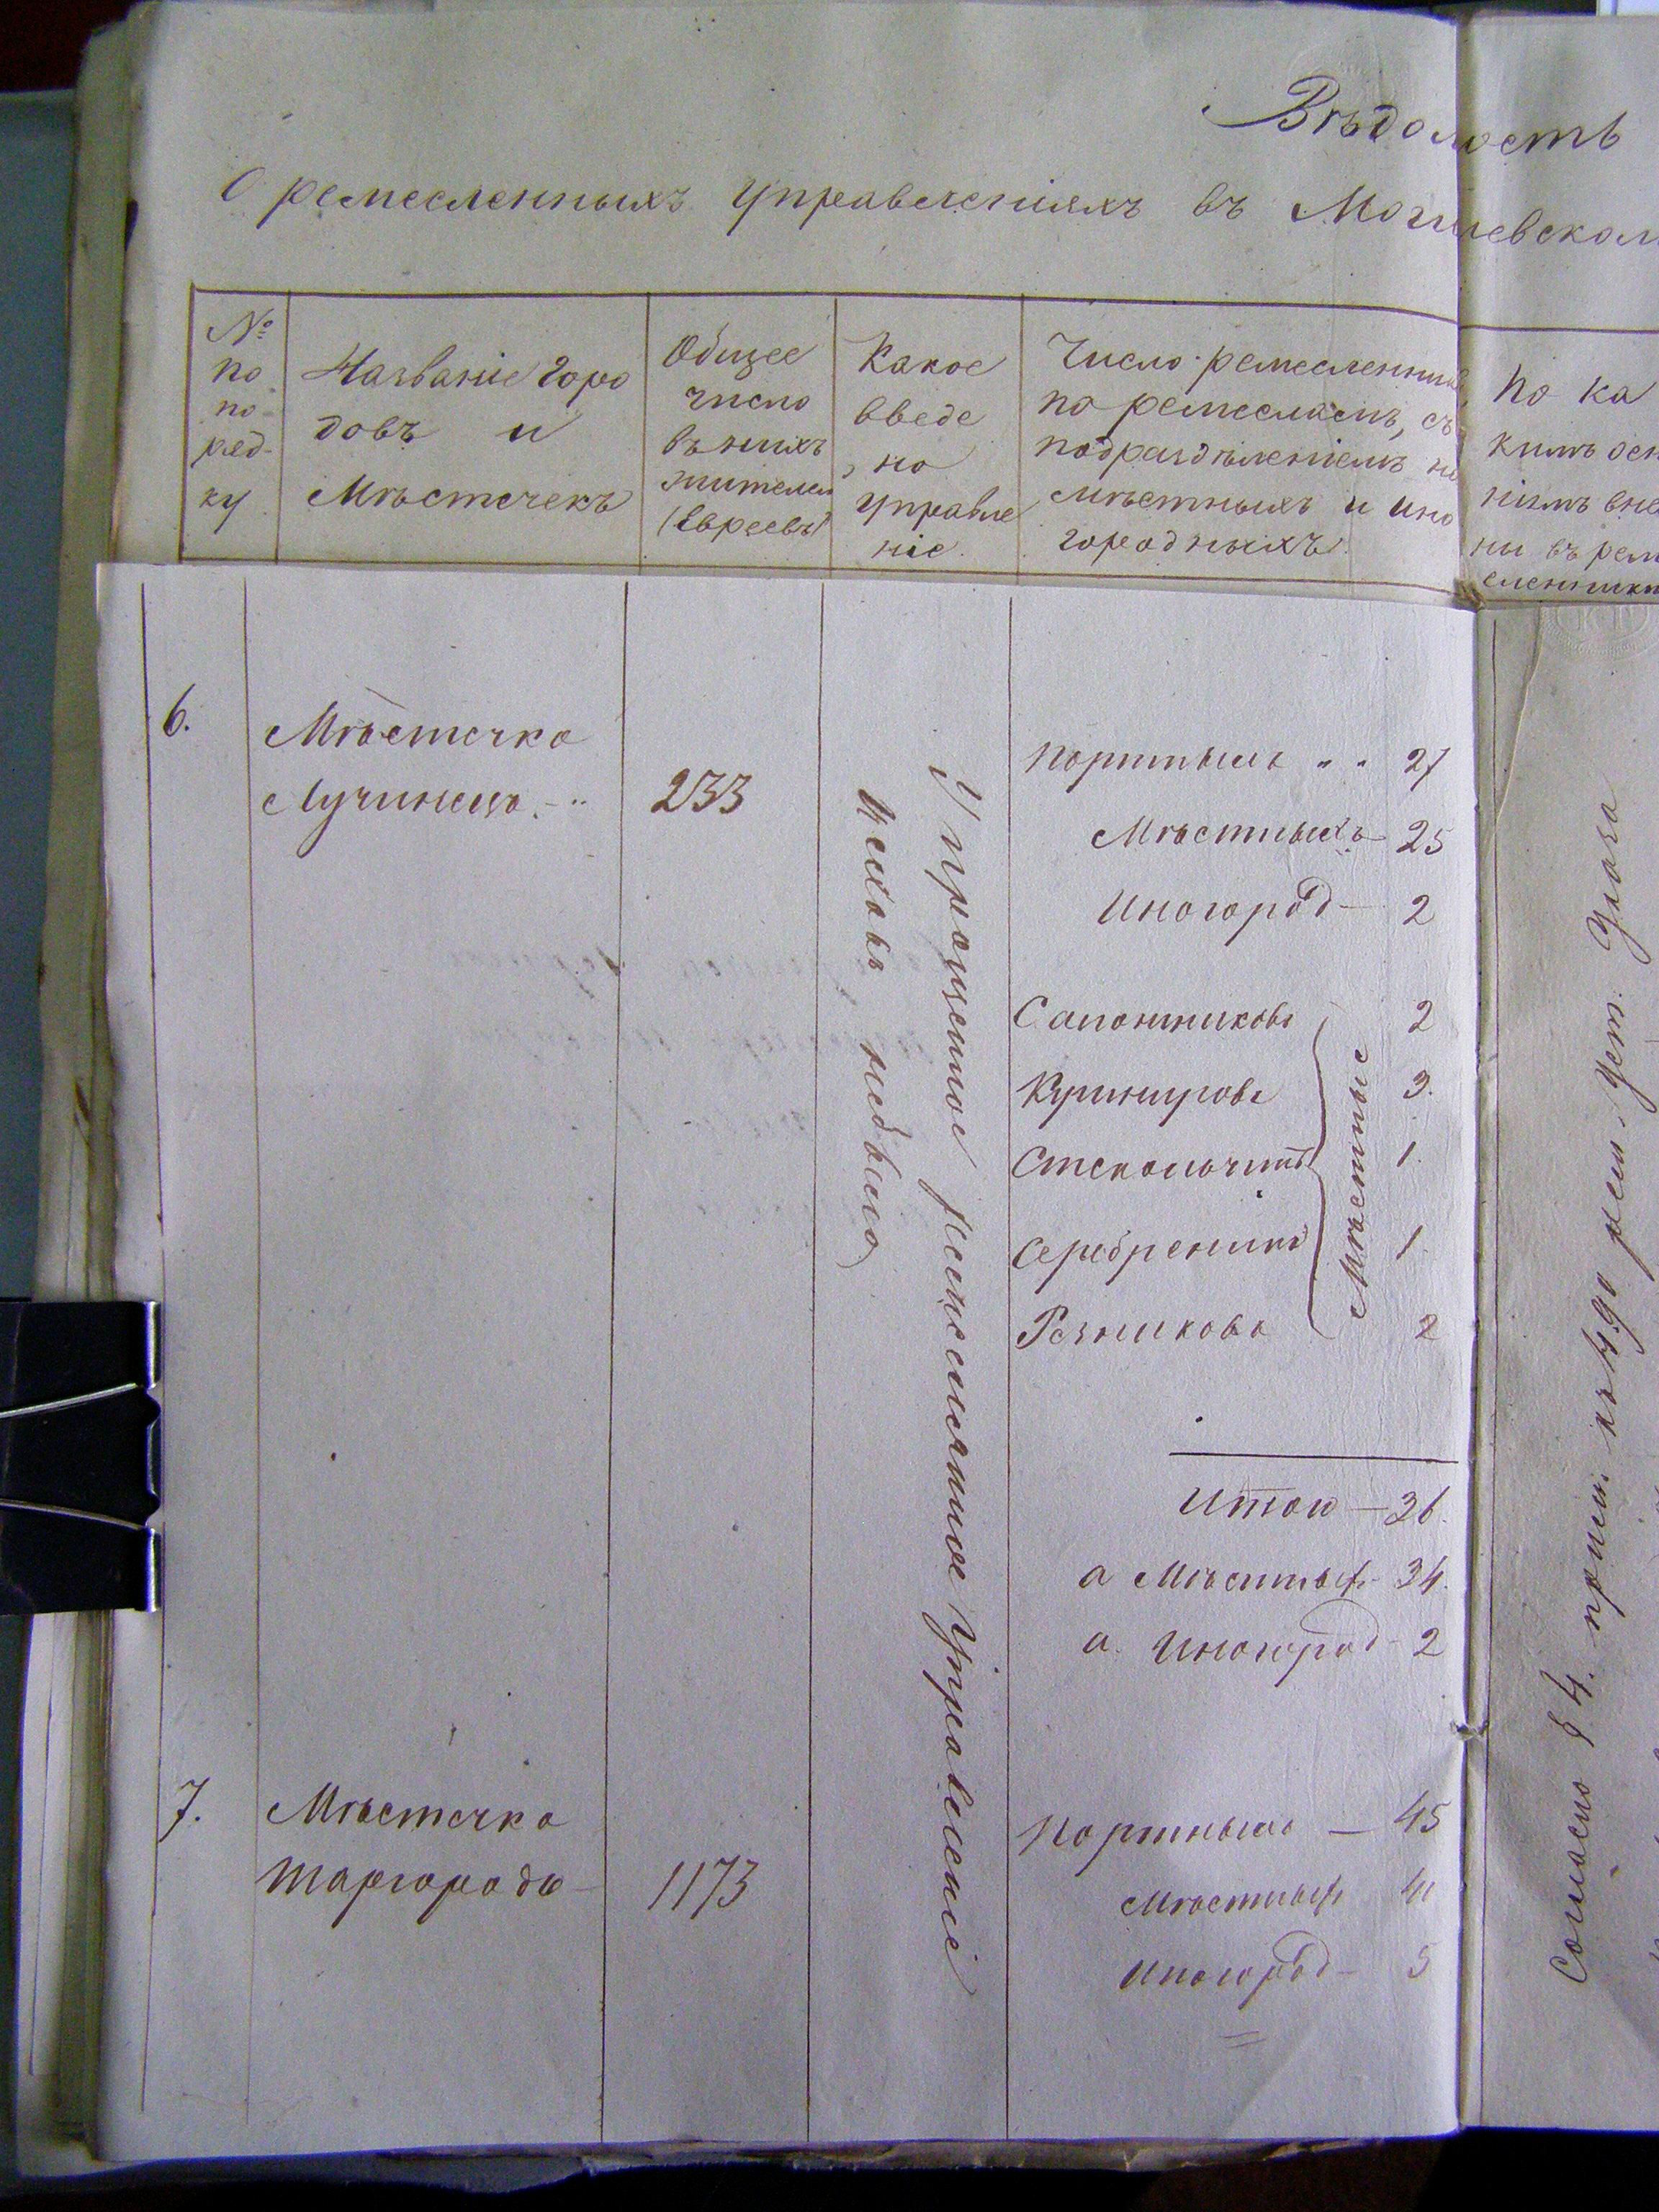 Вѣдомость
О ремесленныхъ управленіяхъ въ Могилевском
№
по
по-
ряд-
ку
Названіе горо
довъ и
Мѣстечекъ
Общее
число
въ нихъ
жителей
(Евреевъ)
Какое
введе
но
управле
ніе.
Число ремесленник
по ремесламъ, съ
подраздѣленіемъ на
мѣстныхъ и ино
городныхъ.
По ка
кимъ осн
німъ вне
ни въ рем
сленники
6.
Мѣстечко
Лучинецъ
233
Упрощенное ремесленное управленіе
Цеховъ небыло
Портныхъ " " 27
Мѣстныхъ 25
Иногород 2
Сапожниковъ 2
Кушнировъ 3.
Стекольчикъ 1.
Серебреникъ 1.
Резниковъ 2
Мѣстные
Итого 36.
а Мѣстных 34.
а. Иногород 2
7.
Мѣстечко
Шаргородъ
1173
Портныхъ 45
Мѣстных 40
Иногород 5
Согласно § 4. прим. къ 490 рем. Уст.